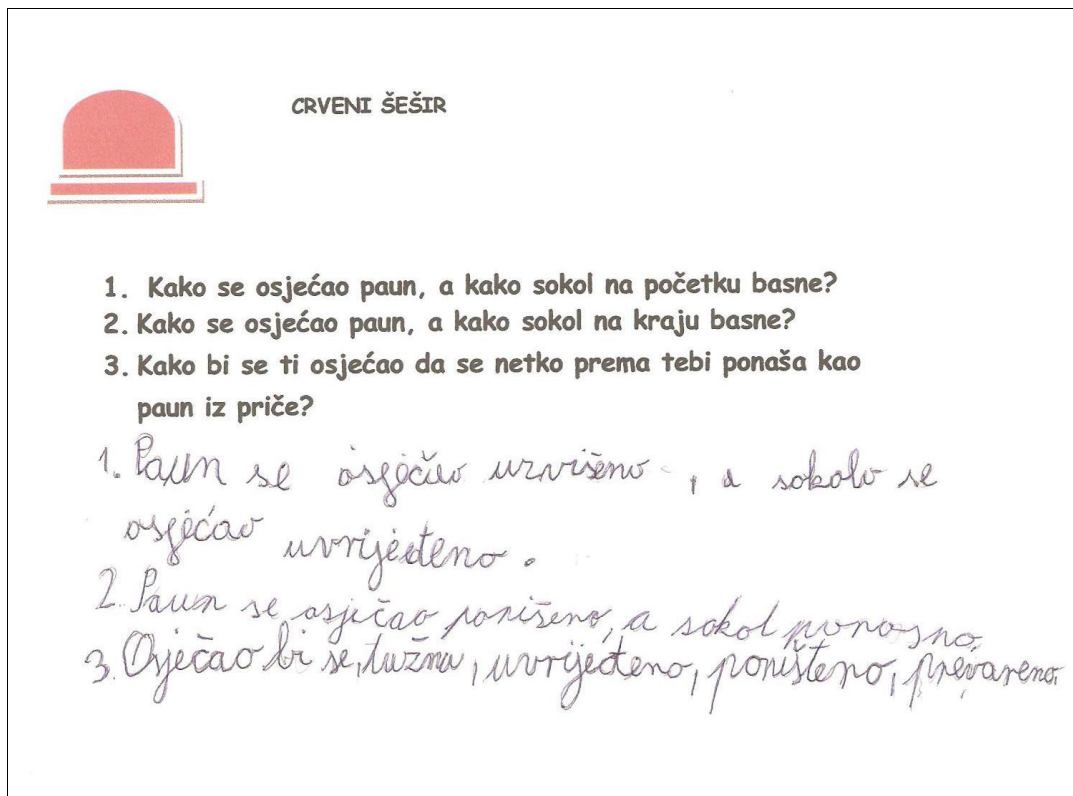 CRVENI ŠEŠIR
1. Kako se osjećao paun, a kako sokol na početku basne?
2. Kako se osjećao paun, a kako sokol na kraju basne?
3. Kako bi se ti osjećao da se netko prema tebi ponaša kao
paun iz priče?
1. Paun se osjećao uzvišeno, a sokolo se
osjećao uvrijeđeno.
2. Paun se osječao ponišeno, a sokol ponosno.
3. Osječao bi se, tužno, uvrijeđeno, poništeno, prevareno.